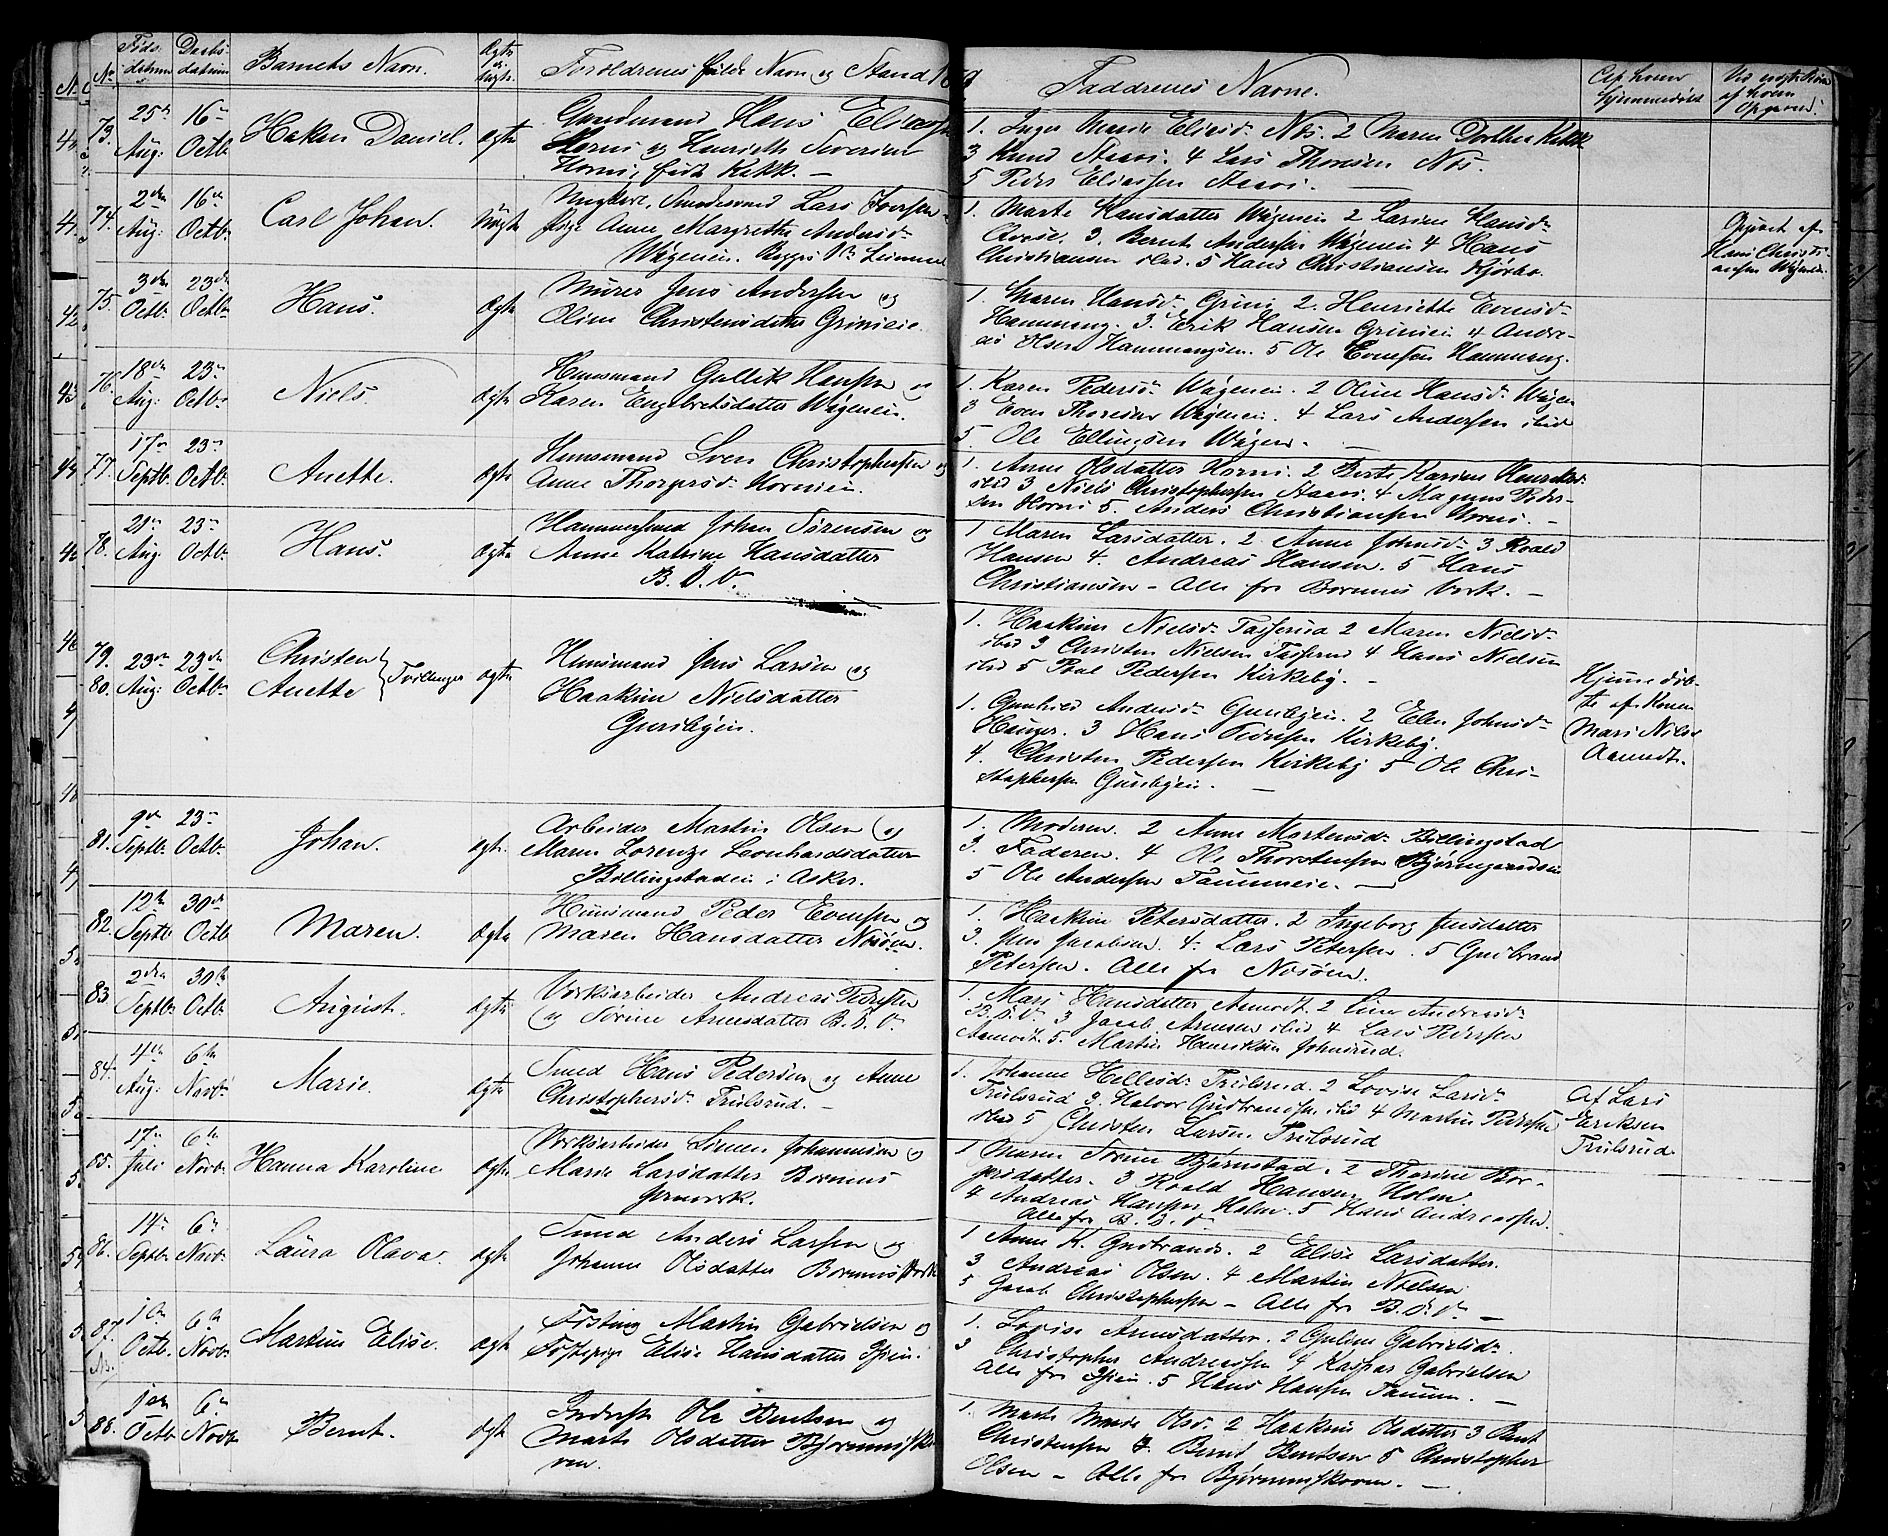 No Føds- datum Daabs- datum Barnets Navn. Ægte og uægte Forældrenes fulde Navn og Stand Faddrenes Navne. Af hvem hjemmedøbt
73. 25de Aug: 16de Octb: Haken Daniel. ægte
Gaardmand Hans Eliassen
Horni og Henriette Severine
Horni, født Kekk. —
1. Inger Marie Eliasd. Næs. 2 Maren Dorthea Kekk
3 Knud Staavi. 4 Lars Thoresen Næs.
5 Peder Eliassen Staavi. —
74. 2den Aug: 16de Octb: Carl Johan. Uægte
Ungkarl, Lars Iversen
Pige Anne Margrethe Andersd.
Wøgenei.
1. Marte Hansdatter Wøyenei 2 Larine Hansd.
3. Bernt Andersen Wøyenei 4 Hans
Christiansen ibid. 5 Hans Christiansen
Opgivet af
Hans Christi-
ansen Wøyenei.
75. 3die Octb: 23de Octb: Hans. ægte
Murer Jens Andersen og
Oline Christensdatter Grinieie.
1. Maren Hansd. Grini 2. Henriette Evensd.
Hammeng. 3. Erik Hansen Grinieie 4 Andre-
as Olsen Hammengeien. 5 Ole Evensen Hammeng.
76. 18de Aug: 23de Octb: Niels. ægte
Huusmand Gullik Hansen og
Karen Engebretsdatter Wøyenei.
1. Karen Pedersd. Wøyenei. 2 Oline Hansd. Wøyen
3 Even Thoresen Wøyenei. 4 Lars Andersen ibid
5. Ole Ellingsen Wøyen. —
77. 17de Septb: 23de Octb: Anette. ægte
Huusmand Sven Christophersen og
Anne Thorgersd. Hornieie.
1. Anne Olsdatter Horni. 2 Berte Karine Henriksd.
ibid 3 Niels Christophersen Staavi. 4 Magnus Peder-
sen Horni 5. Anders Christiansen Horni. —
78. 21de Aug 23de Octb: Hans. ægte
Hammersmed Johan Sørensen og
Anne Katrine Hansdatter
B. J. V.
1 Maren Larsdatter. 2. Anne Johnsd. 3 Roald
Hansen 4. Andreas Hansen. 5 Hans
Christiansen – Alle fra Bærums Verk. —
79. 80. 23de Aug: 23de Octb: Christen Anette } Tvillinger ægte
Huusmand Jens Larsen og
Haakine Nielsdatter
Gunsbyeie.
1. Haakine Nielsd. Tasserud 2 Maren Nielsd.
ibid 3 Christen Nielsen Tasserud 4 Hans Nielsen
ibid 5 Poul Pedersen Kirkeby. —
1. Gunhild Andersd. 2 Elen Johnsd.
Hauger. 3 Hans Pedersen Kirkeby.
4. Christen Pedersen Kirkeby 5 Ole Chri-
stophersen —
Hjemmedøb-
te af Konen
Mari Nilsd
Aamodt.
81. 9de Septb: 23de Johan. ægte.
Arbeider Martin Olsen og
Maren Lorenze Leonhardsdatter
Billingstadeie i Asker.
1. Moderen. 2 Anne Mortensd. Billingstad
3. Faderen. 4 Ole Thorstensen
5 Ole Andersen Tanumeie. —
82. 12te Septb 30de Octb Maren. ægte
Huusmand Peder Evensen og
Maren Hansdatter Næsøen.
1. Haakine Petersdatter. 2 Ingeborg Jensdatter
3. Jens Jacobsen. 4. Lars Petersen. 5 Gulbrand
Petersen. Alle fra Næsøen.
83. 2den Septb: 30te Octb: August. ægte
Verksarbeider Andreas Pedersen
og Sørine Arnesdatter B. J. V.
1. Mari Hansdatter Aamodt. 2 Line Andersd.
B. J. V. 3 Jacob Arnesen ibid 4 Lars Pedersen
Aamodt. 5. Martin Henriksen Johnsrud.
84. 4de Aug: 6te Novb: Marie. ægte
Smed Hans Pedersen og Anne
Christophersd. Trulsrud. —
1. Johanne Hellesd. Trulsrud. 2 Lovise Larsd.
Trulsrud 3. Halvor Gudbrandsen ibid 4 Martin Pedersen
ibid 5 Christen Larsen Trulsrud
Af Lars
Eriksen
Trulsrud.
85. 17de Juli 6te Novb: Hanna Karoline ægte
Verksarbeider Simen Johannesen og
Marie Larsdatter Bærums
Jernverk.
1 Maren Sørine Bjørnstad. 2 Thorine Bør-
gesdatter. 3 Roald Hansen Holm.
4 Andreas Hansen Holm. 5 Hans Andreassen.
Alle fra B. J. V.
86. 14de Septb: 6te Novb: Laura Olava. ægte
Smed Anders Larsen og
Johanne Olsdatter Bærums Verk
1 Anne K. Gudbrands. 2 Elise Larsdatter.
3 Andreas Olsen. 4 Martin Nielsen
5 Jacob Christophersen – Alle fra B. J. V. —
87. 1ste Octb. 6te Novb: Martine Elise. ægte
Martin Gabrielsen og
Elise Hansdatter
1. Lovise Arnesdatter. 2 Guline Gabrielsd.
3 Christopher Andreassen 4 Kaspar Gabrielsen
Alle fra 5 Hans Hansen Tanum. —
88. 1ste Octb. 6te Novb. Bernt. ægte
Inderst Ole Berntsen og
Marte Olsdatter Bjørumsskov-
ven.
1. Marte Marie Olsd. 2 Haakine Olsdatter 3 Bernt
Christensen 3. Bernt Berntsen 5 Christopher
Olsen – Alle fra Bjørumsskoven. —